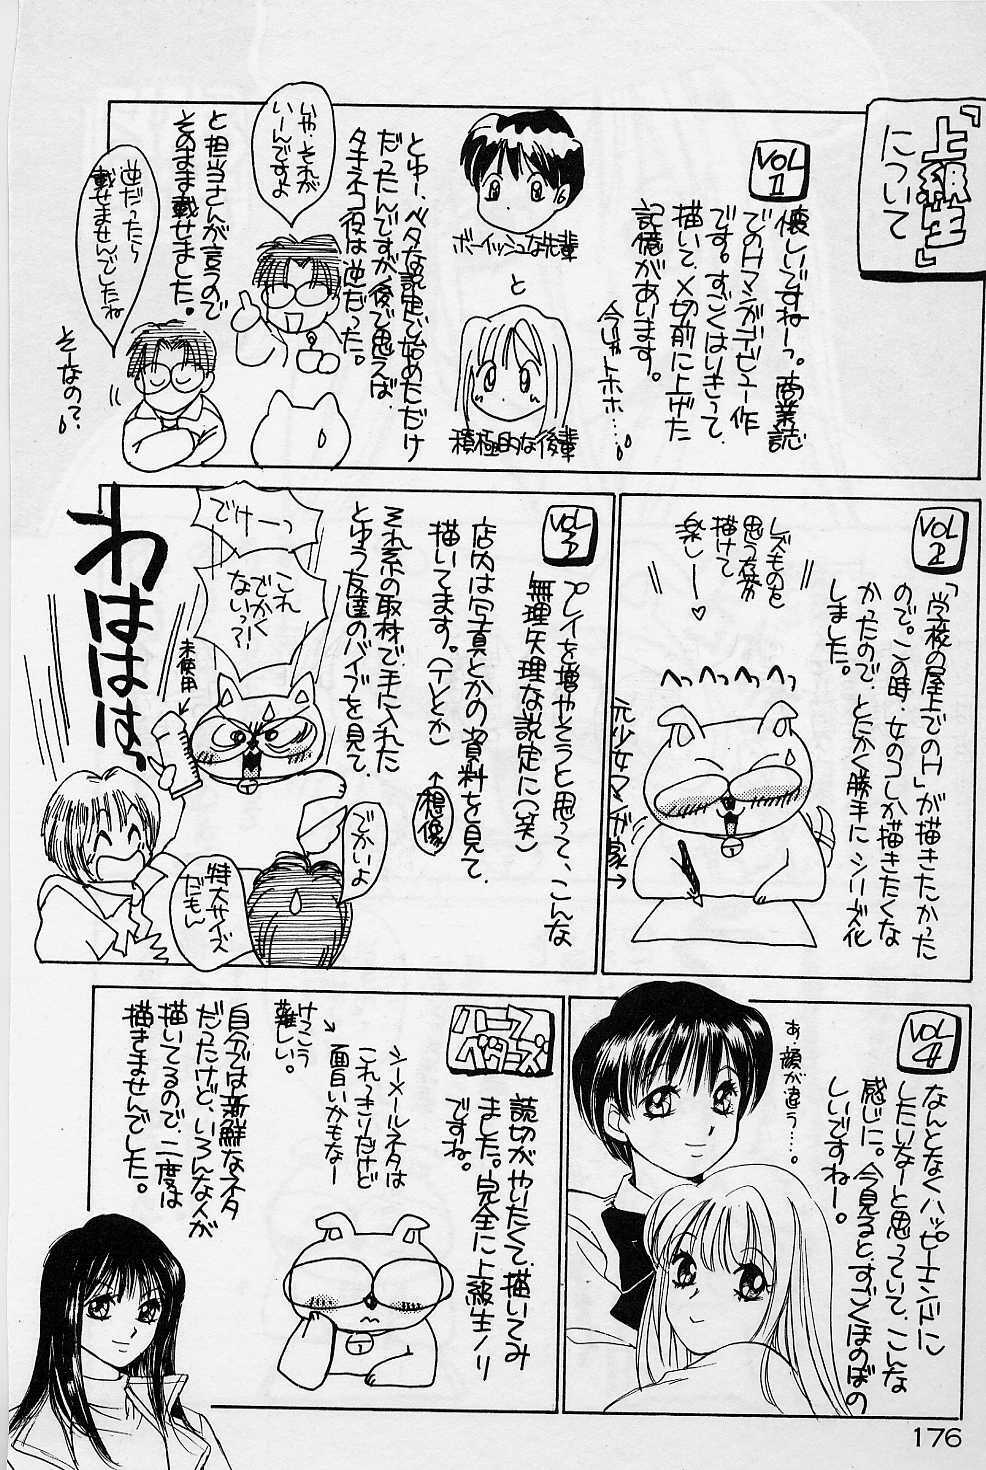 「上級生」
について
VOL
1
懐しいですねーっ。商業誌
でのHマンガデビュー作
です。すごくはりきって、
描いて、〆切前に上げた
記憶があります。
今じゃトホホ……
ボーイッシュな先輩
と
積極的な後輩
とゆー、ベタな設定で始めただけ
だったんですが、後で思えば、
タチネコ役は逆だった。
いや、それが
いーんですよ
と担当さんが言うので
そのまま載せました。
逆だったら
載せませんでしたね
そーなの?
VOL
2
「学校の屋上でのH」が描きたかった
ので。この時、女のコしか描きたくな
かったので、とにかく勝手にシリーズ化
しました。
レズものを
思う存分
描けて
楽しー♡
へっへっへっへっ
元少女マンガ家→
VOL
3
プレイを増やそうと思って、こんな
無理矢理な設定に(笑)
店内は写真とかの資料を見て、
描いてます。(Tとか)
↑想像
それ系の取材で手に入れた
とゆう友達のバイブを見て、
でけーっ
これ
でかく
ないっ?!
未使用
わははは
でかいよ
特大サイズ
だもん
VOL
4
なんとなくハッピーエンドに
したいなーと思っていて、こんな
感じに。今見ると、すごくほのぼの
しいですねー。
あ、顔が違う…。
ハーフ
ベターズ
読切がやりたくて、描いてみ
ました。完全に上級生ノリ
ですね。
シーメールネタは
これっきりだけど
面白いかもなー
けっこう
難しい。
自分では新鮮なネタ
だったけど、いろんな人が
描いてるので、二度は
描きませんでした。
176